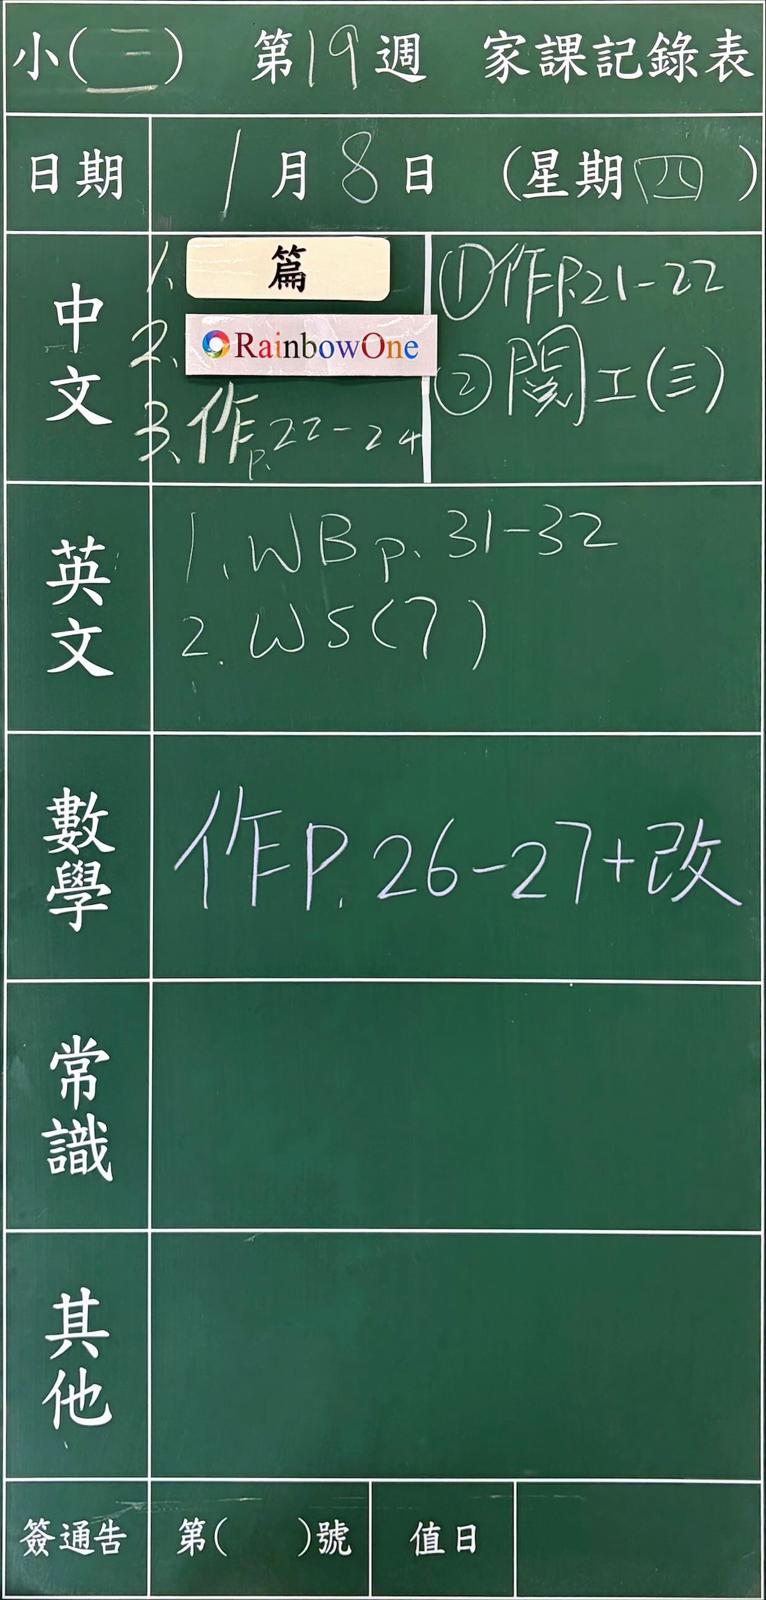 小(二) 第19週 家課記錄表
日期 1月8日 (星期四)
中文
1. 篇
2. RainbowOne
3. 作 p.22-24
① 作P.21-22
② 閱工(三)
英文
1. WB p. 31-32
2. WS(7)
數學
作P. 26-27+改
常識
其他
簽通告 第( )號 值日